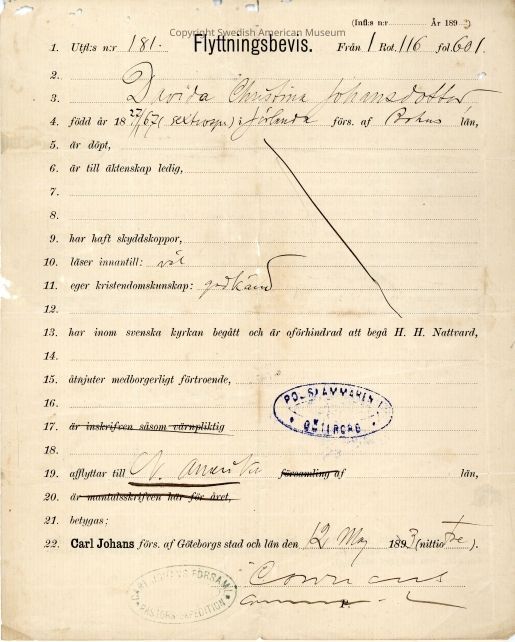 Copyright Swedish American Museum
(Infl:s n:r År 1893)
1. Utfl:s n:r 181. Flyttningsbevis. Från 1 Rot. 116 fol. 601.
2.
3. Davida Christina Johansdotter
4. född år 18 /67 ( i Jörlanda förs. af Bohus län,
5. är döpt,
6. är till äktenskap ledig,
7.
8.
9. har haft skyddskoppor,
10. läser innantill: väl
11. eger kristendomskunskap: godkänd
12.
13. har inom svenska kyrkan begått och är oförhindrad att begå H. H. Nattvard,
14.
15. åtnjuter medborgerligt förtroende,
16.
POLISKAMMAREN I
GÖTEBORG
17. är inskrifven såsom värnpliktig
18.
19. afflyttar till N. Amerika församling af län,
20. är mantalsskrifven här för året,
21. betygas;
22. Carl Johans förs. af Göteborgs stad och län den 12 Maj 1893 (nittiotre).
CARL JOHANS FÖRSAML.
PASTORSEXPEDITION